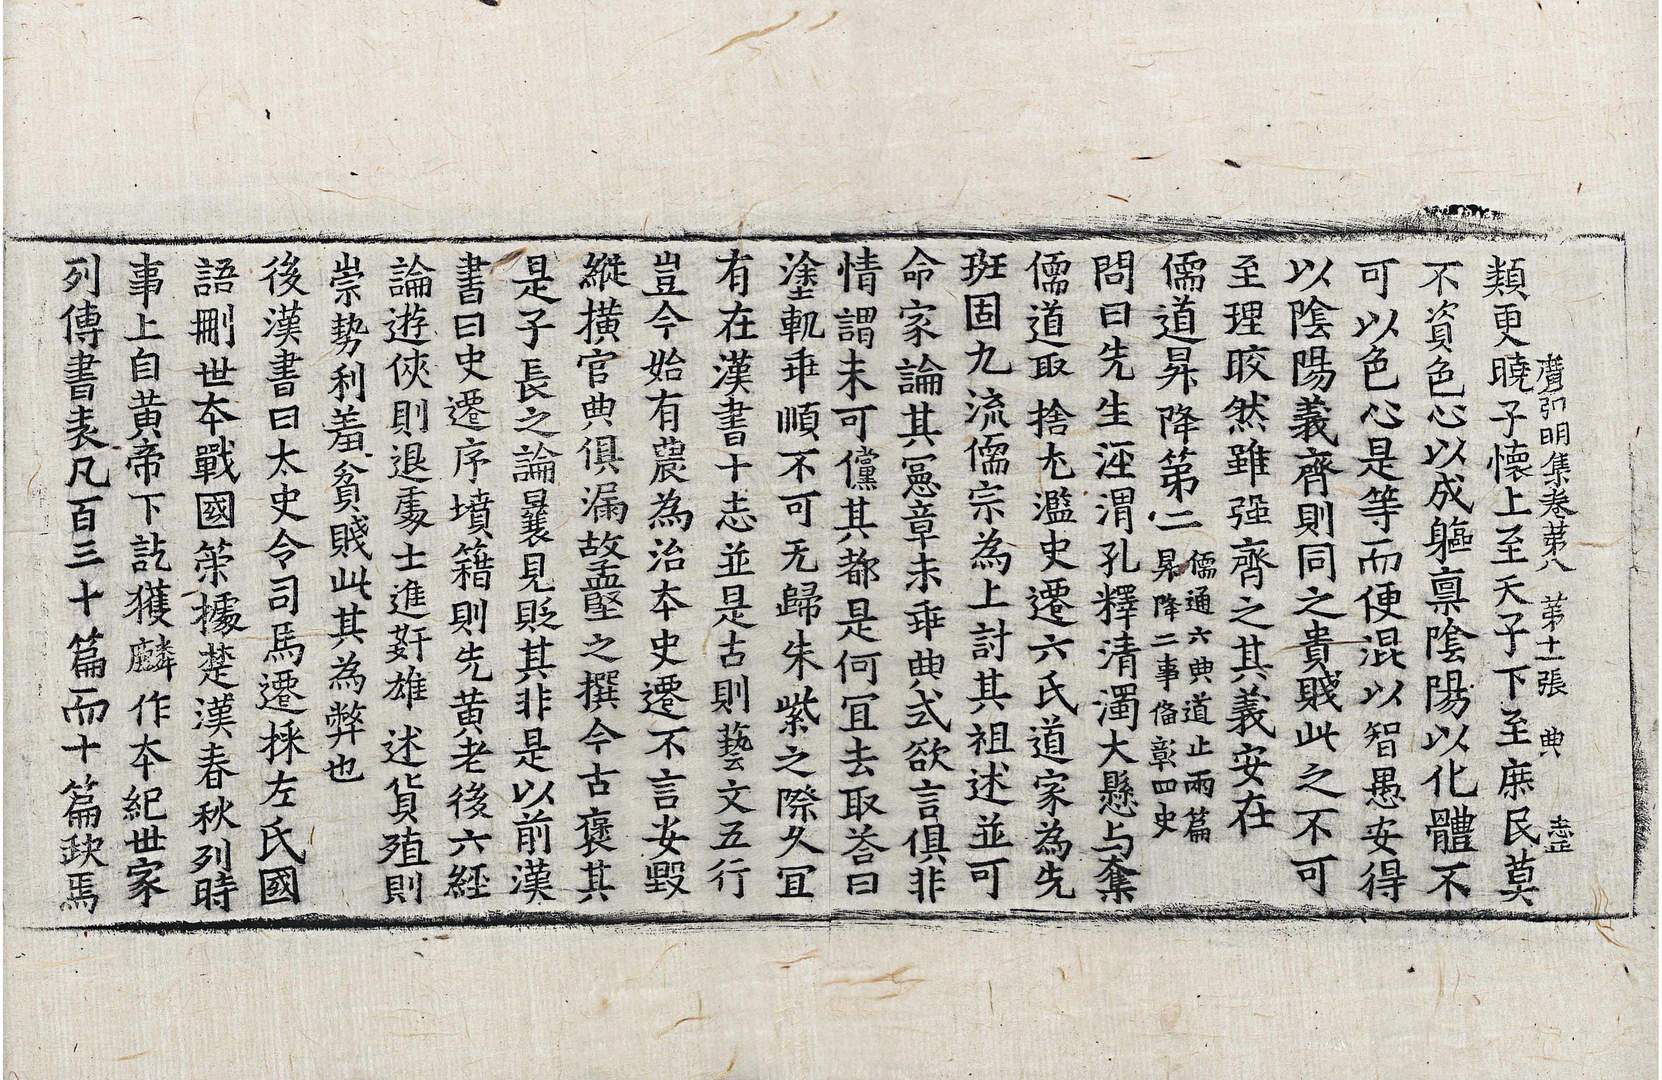 廣弘明集卷第八　第十一張　典　志㱏
類更曉子懷上至天子下至庶民莫
不資色心以成軀稟陰陽以化體不
可以色心是等而便混以智愚安得
以陰陽義齊則同之貴賤此之不可
至理皎然雖强齊之其義安在
儒道昇降第二 儒通六典道止兩篇
昇降二事俻彰四史
問曰先生涇渭孔釋清濁大懸与奪
儒道取捨尤濫史遷六氏道家為先
班固九流儒宗為上討其祖述並可
命家論其憲章未乖典式欲言俱非
情謂未可儻其都是何冝去取荅曰
塗軌乖順不可无歸朱紫之際久冝
有在漢書十志並是古則藝文五行
豈今始有農為治夲史遷不言安毀
縱橫官典俱漏故孟堅之撰今古襃其
是子長之論曩見貶其非是以前漢
書曰史遷序墳籍則先黄老後六經
論遊俠則退處士進姧雄述貨殖則
崇勢利羞貧賤此其為弊也
後漢書曰太史令司馬遷採左氏國
語刪世夲戰國策據楚漢春秋列時
事上自黄帝下訖獲麟作夲紀世家
列傳書表凡百三十篇而十篇缺焉